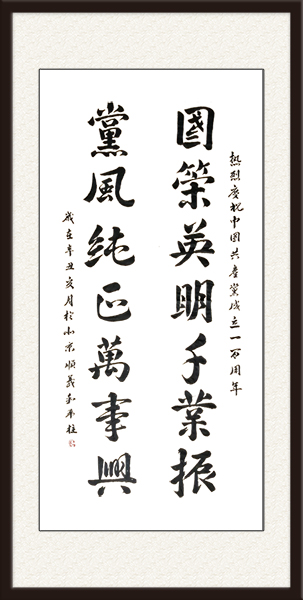 熱烈慶祝中国共產黨成立一百周年
國策英明千業振
黨風純正萬事興
歲在辛丑夏月於北京順義和平柱